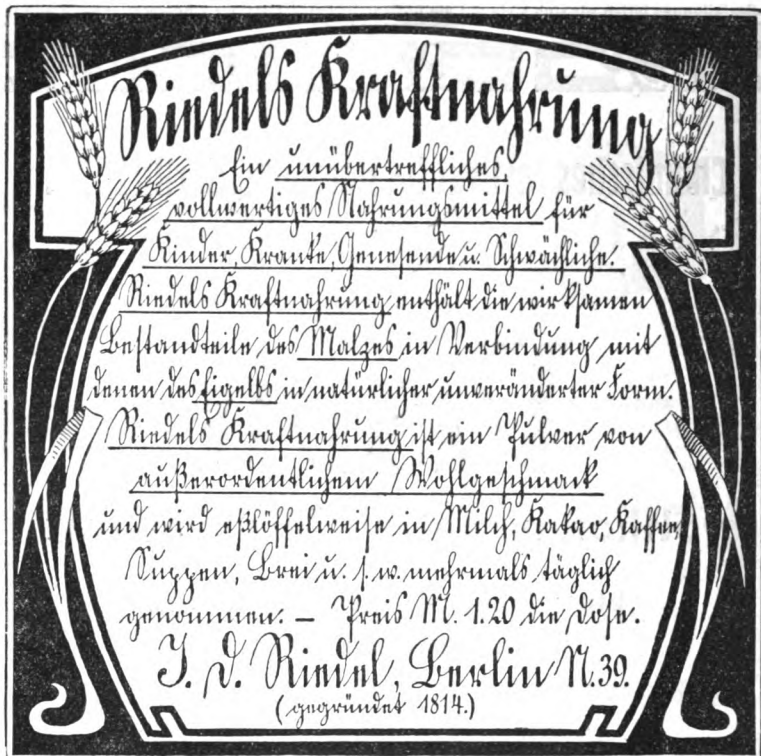 Riedels Kraftnahrung
Ein unübertreffliches
vollwertiges Nahrungsmittel für
Kinder, Kranke, Genesende u. Schwächliche.
Riedels Kraftnahrung enthält die wirksamen
Bestandteile des Malzes in Verbindung mit
denen des Eigelbs in natürlicher unveränderter Form.
Riedels Kraftnahrung ist ein Pulver von
außerordentlichem Wohlgeschmack
und wird eßlöffelweise in Milch, Kakao, Kaffee,
Suppen, Brei u. s. w. mehrmals täglich
genommen. – Preis M. 1.20 die Dose.
J. D. Riedel, Berlin N. 39.
(gegründet 1814.)